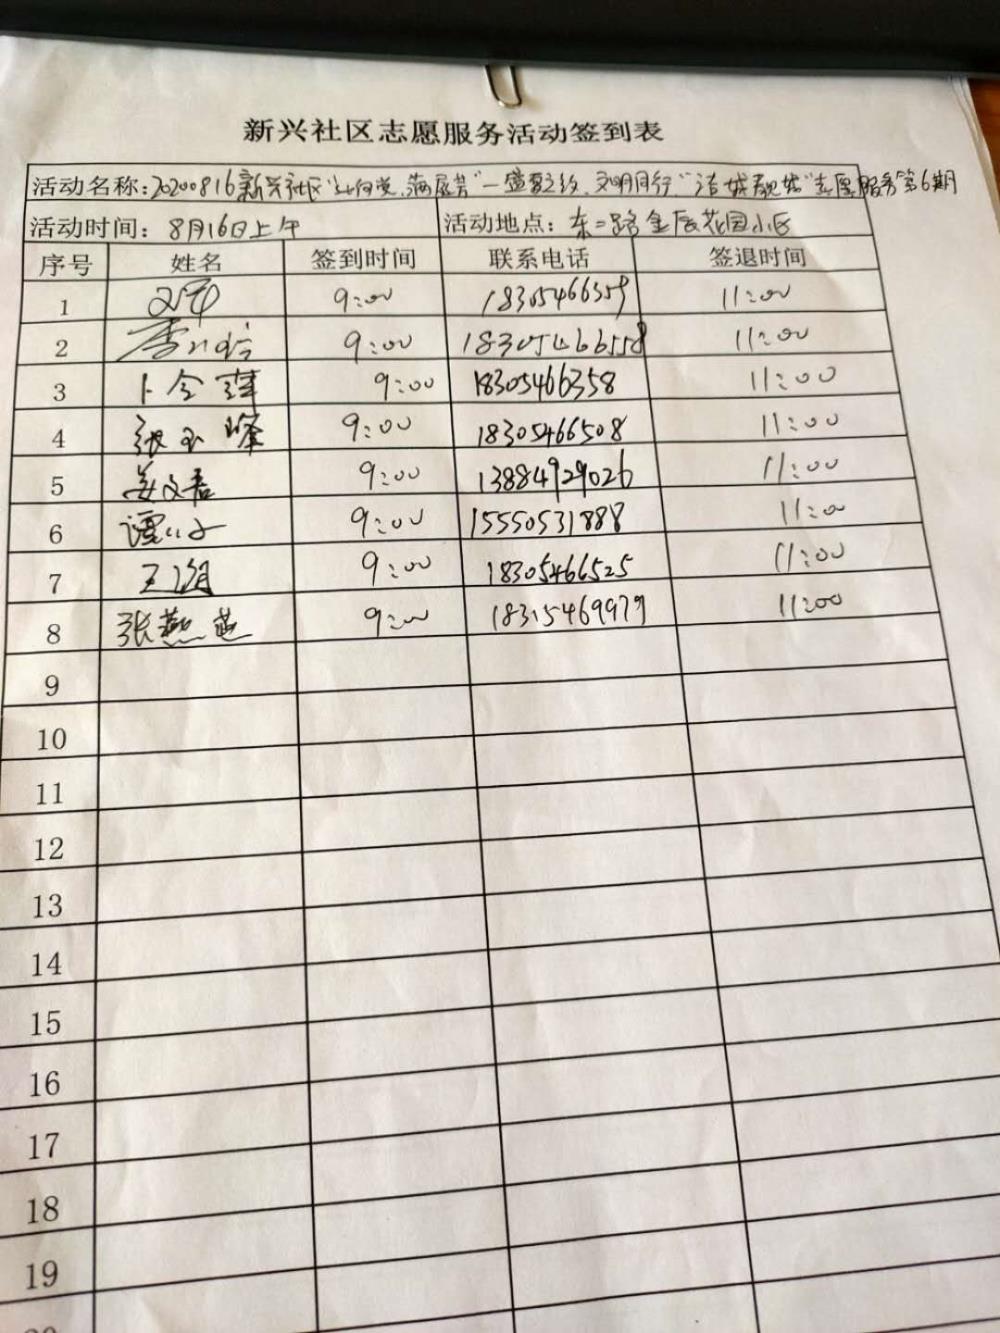 新兴社区志愿服务活动签到表
活动名称:20200816新兴社区"心向党、"一盛夏之约、文明同行""志愿服务第6期
活动时间: 8月16日上午 活动地点: 东二路金辰花园小区
序号 姓名 签到时间 联系电话 签退时间
1 9:00 11:00
2 9:00 18305466558 11:00
3 卜令 9:00 18305466358 11:00
4 张玉峰 9:00 18305466508 11:00
5 姜文君 9:00 13884929026 11:00
6 谭 9:00 15550531888 11:00
7 王 9:00 18305466525 11:00
8 张燕燕 9:00 18315469979 11:00
9
10
11
12
13
14
15
16
17
18
19